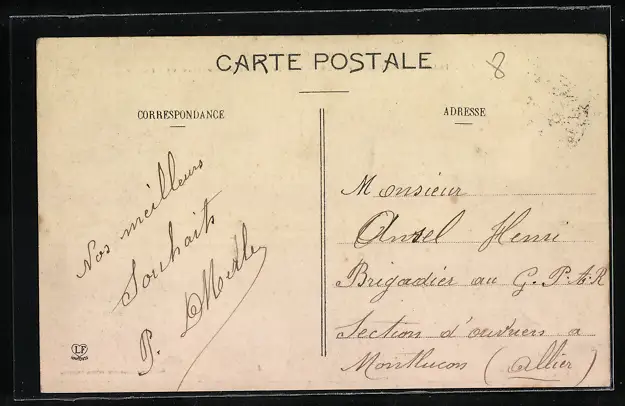 CARTE POSTALE
8
CORRESPONDANCE
ADRESSE
Nos meilleurs
Souhaits
P.
Monsieur
Ansel Henri
Brigadier au G. P. A. R
Section d'ouvriers a
Montlucon (Allier)
LF